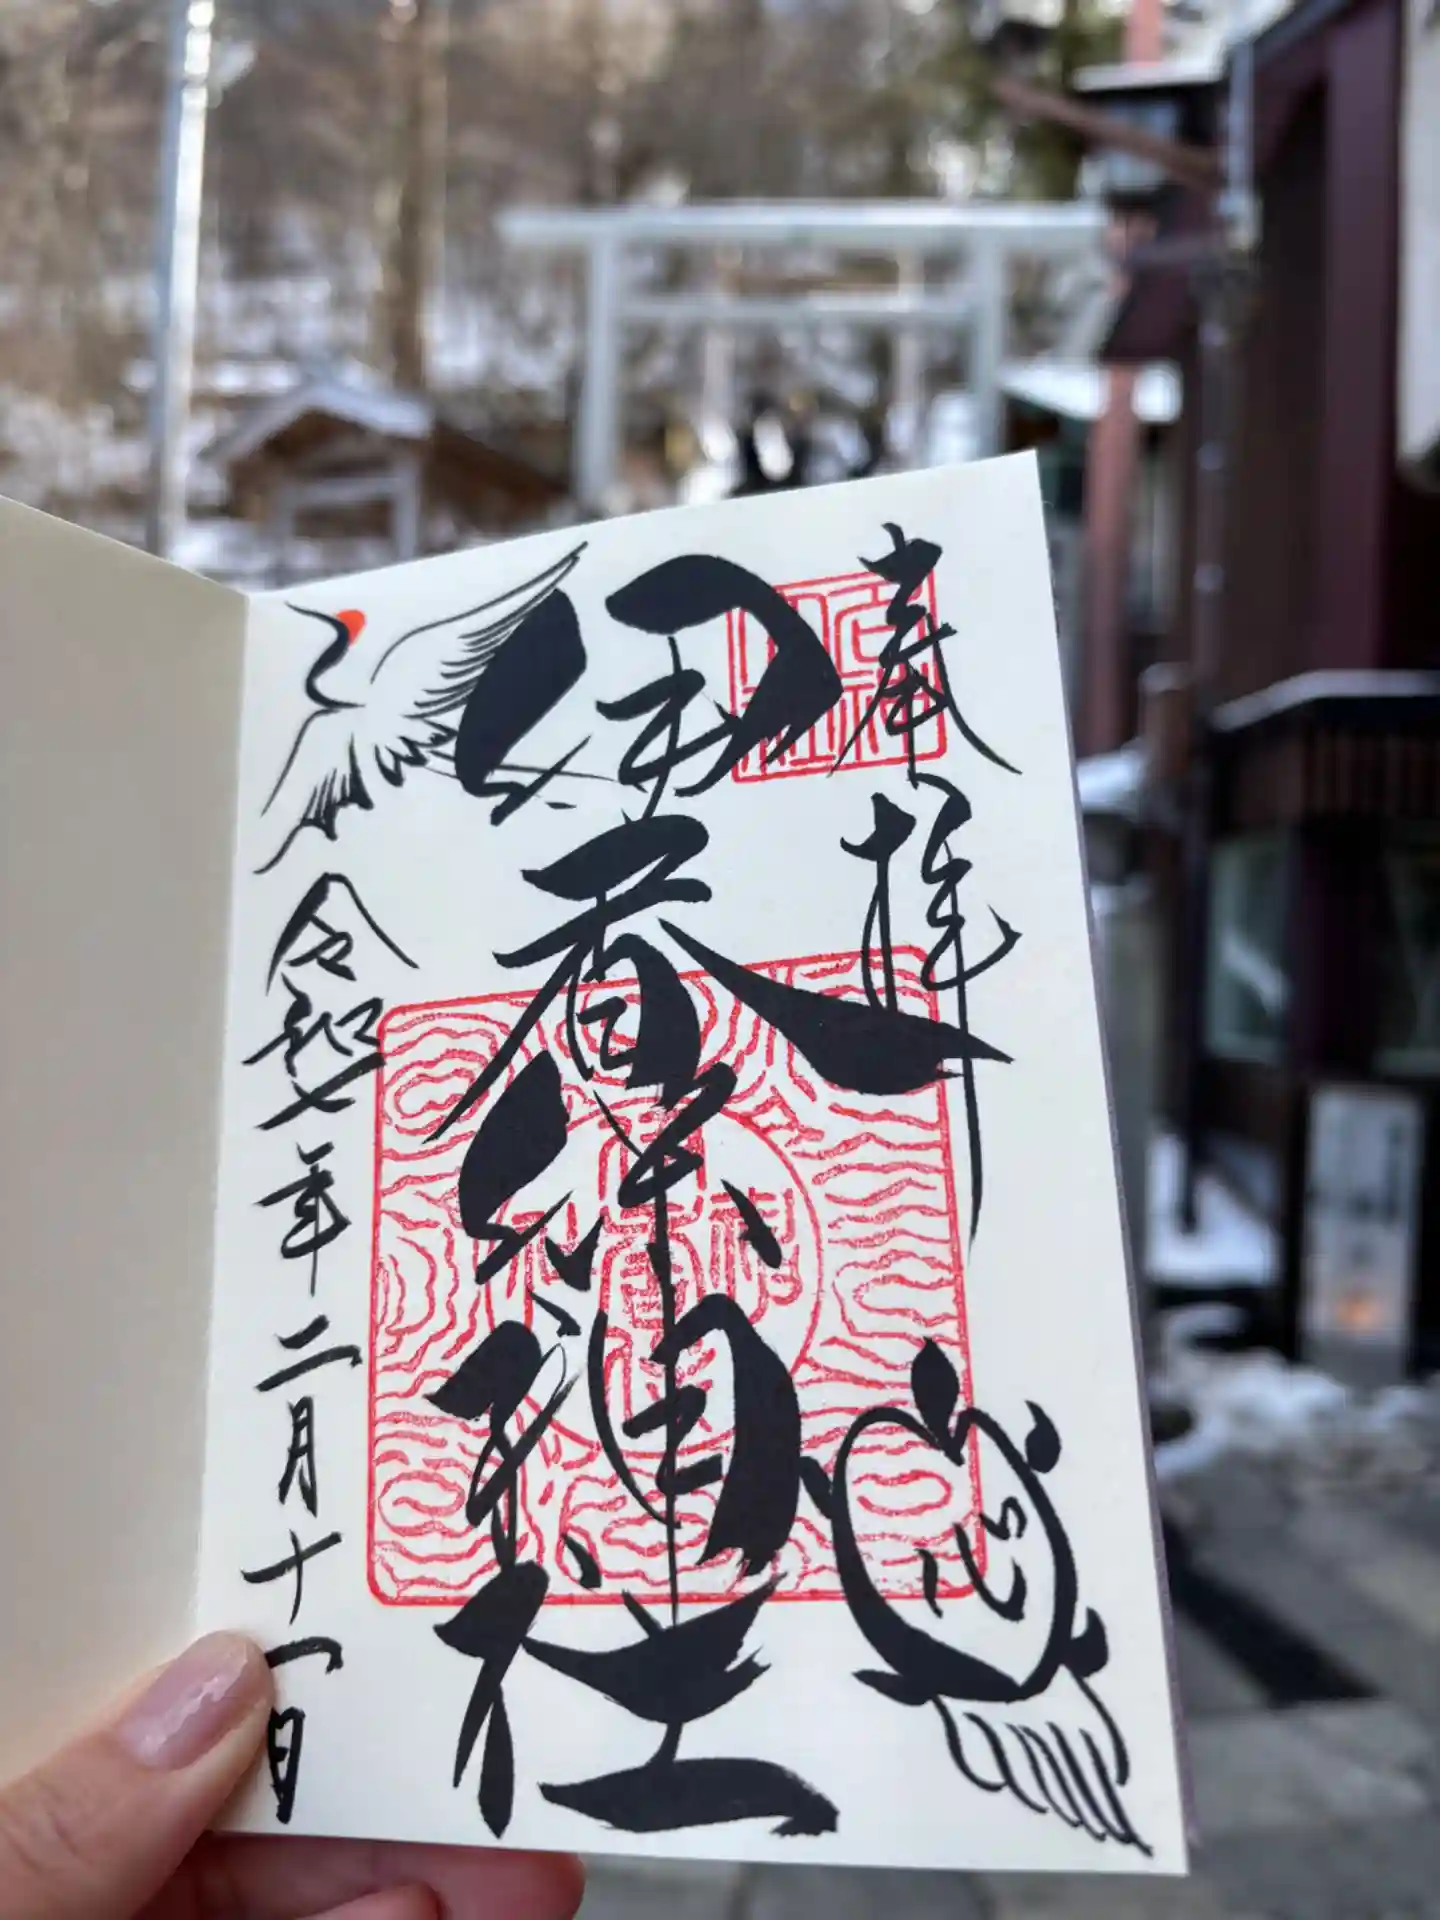 奉拝
伊香保神社
令和七年二月十一日